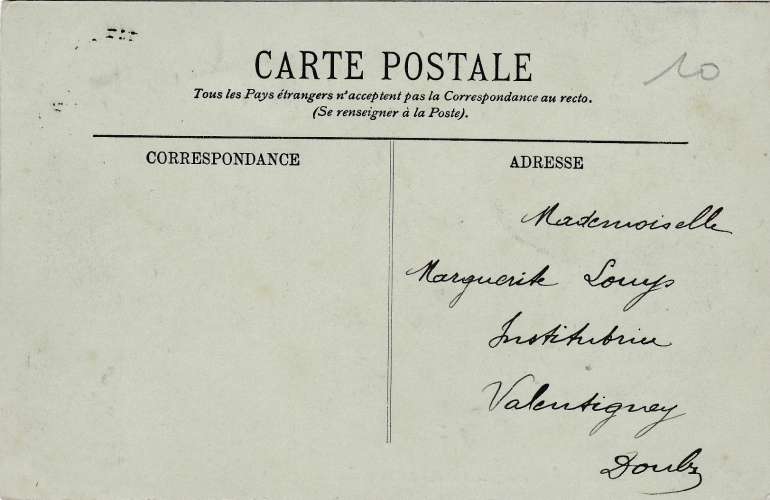 CARTE POSTALE
10
Tous les Pays étrangers n'acceptent pas la Correspondance au recto.
(Se renseigner à la Poste).
CORRESPONDANCE
ADRESSE
Mademoiselle
Marguerite Louys
Institutrice
Valentigney
Doubs